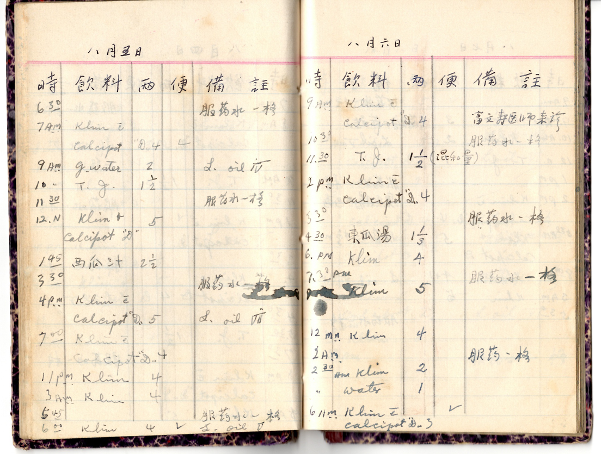 八月五日
時 飲料 两 便 備 註
6 30 服药水一格
7 AM Klim c̄
Calcipot "D. 4 4
9 AM g. water 2 L. oil
10 " T. J. 1 1/2
11 30 服药水一格
12. N Klim &
Calcipot "D" 5
1 45 西瓜汁 2 1/2
3 30 服药水一格
4 pm Klim c̄
Calcipot "D. 5 L. oil
7 00 Klim c̄
Calcipot "D. 4
11 pm Klim 4
3 am Klim 4
5 45 服药水一格
6 00 Klim 4 ✓ L. oil
八月六日
時 飲料 两 便 備 註
9 AM Klim c̄
Calcipot "D. 4
10 30 服药水一格
11 30 T. J. 1 1/2
2 pm Klim c̄
Calcipot "D. 4
3 30 服药水一格
4 30 東瓜湯 1 1/3
6. pm Klim 4
7. 30 pm 服药水一格
Klim 5
12 mn Klim 4
2 AM 服药一格
2 30 AM Klim 2
" water 1
6 AM Klim c̄ ✓
Calcipot "D. 3